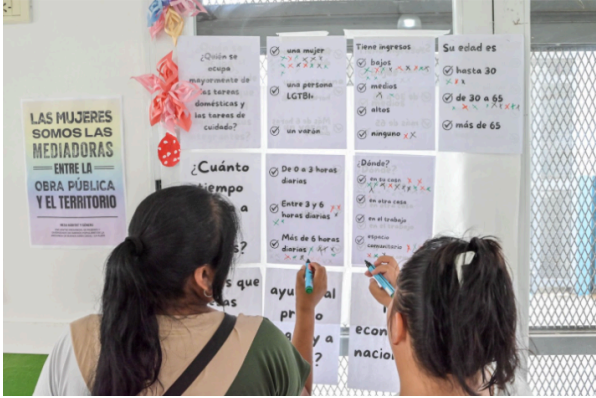 LAS MUJERES
SOMOS LAS
MEDIADORAS
ENTRE LA
OBRA PÚBLICA
Y EL TERRITORIO
¿Quién se
ocupa
mayormente de
las tareas
domésticas y
las tareas de
cuidado?
una mujer
una persona
LGTBI+
un varón
Tiene ingresos
bajos
medios
altos
ninguno
Su edad es
hasta 30
de 30 a 65
más de 65
¿Cuánto
tiempo
De 0 a 3 horas
diarias
Entre 3 y 6
horas diarias
Más de 6 horas
diarias
¿Dónde?
en su casa
en otra casa
en el trabajo
espacio
comunitario
que
al